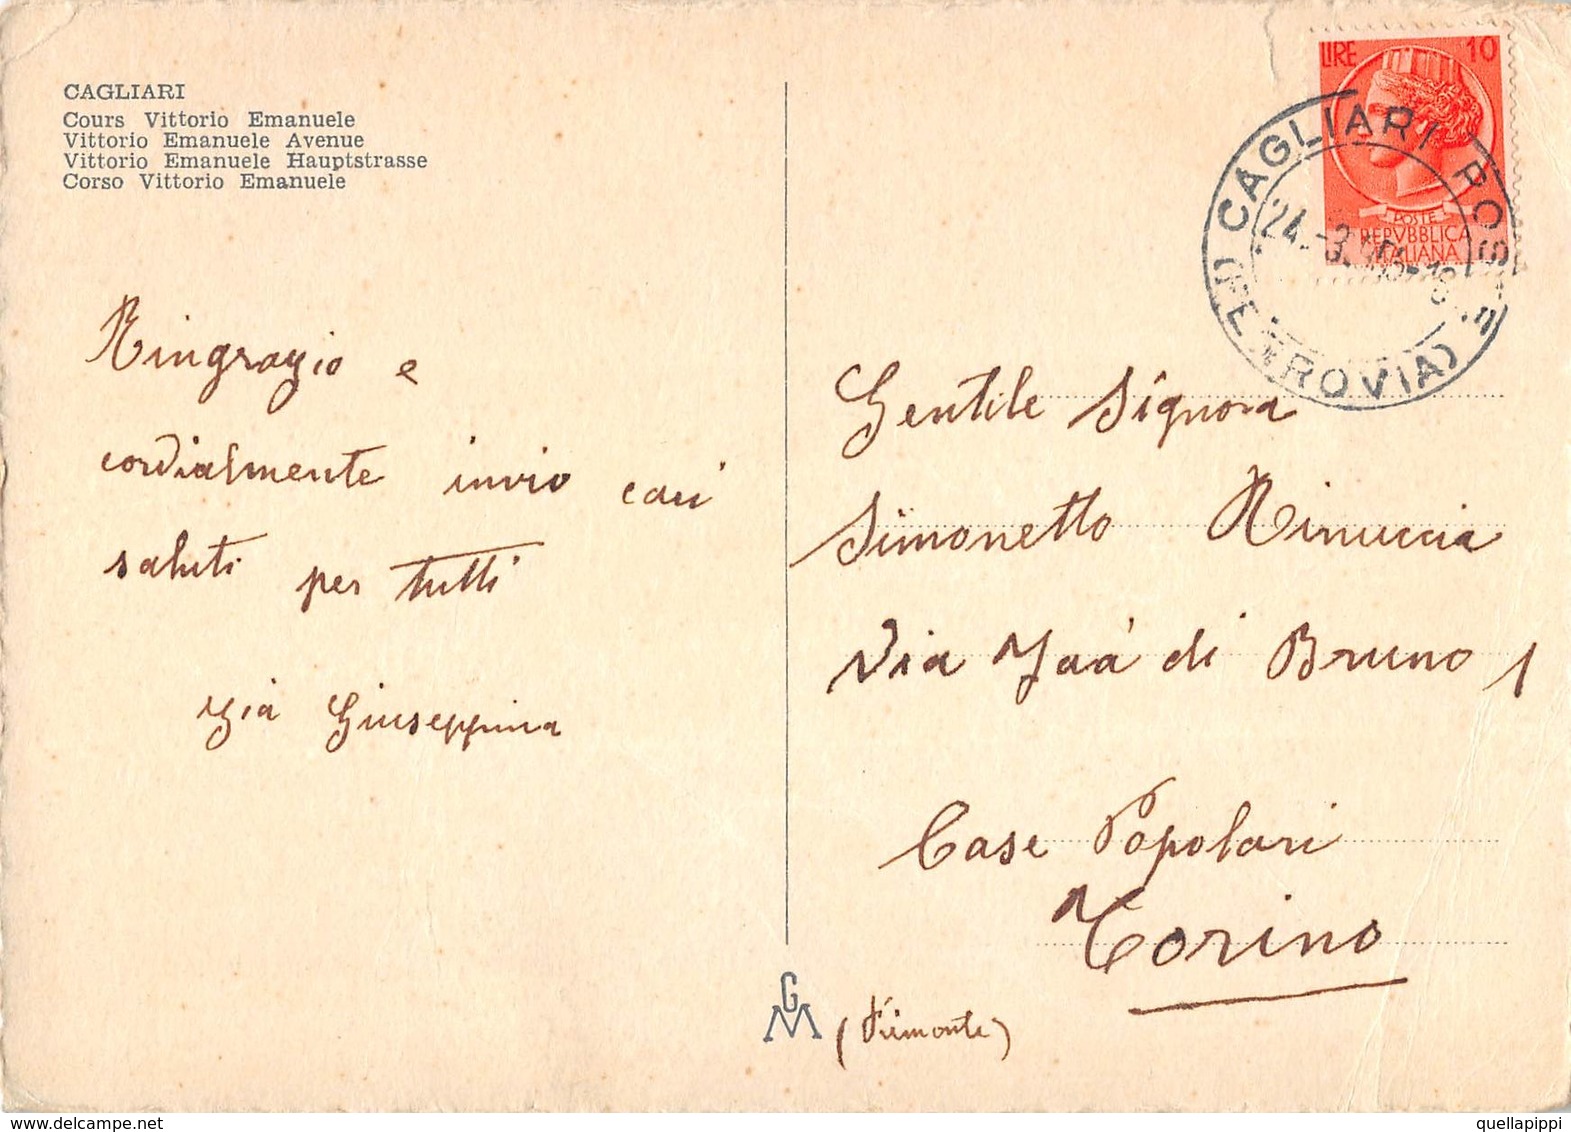 CAGLIARI
Cours Vittorio Emanuele
Vittorio Emanuele Avenue
Vittorio Emanuele Hauptstrasse
Corso Vittorio Emanuele
LIRE 10
POSTE
REPVBBLICA
ITALIANA
CAGLIARI POSTE
(FERROVIA)
24.-3.
Ringrazio e
cordialmente invio cari
saluti per tutti
Giuseppina
Gentile Signora
Simonetto Rinuccia
Via di Bruno 1
Case Popolari
Torino
(Piemonte)
GM
delcampe.net
quellapippi